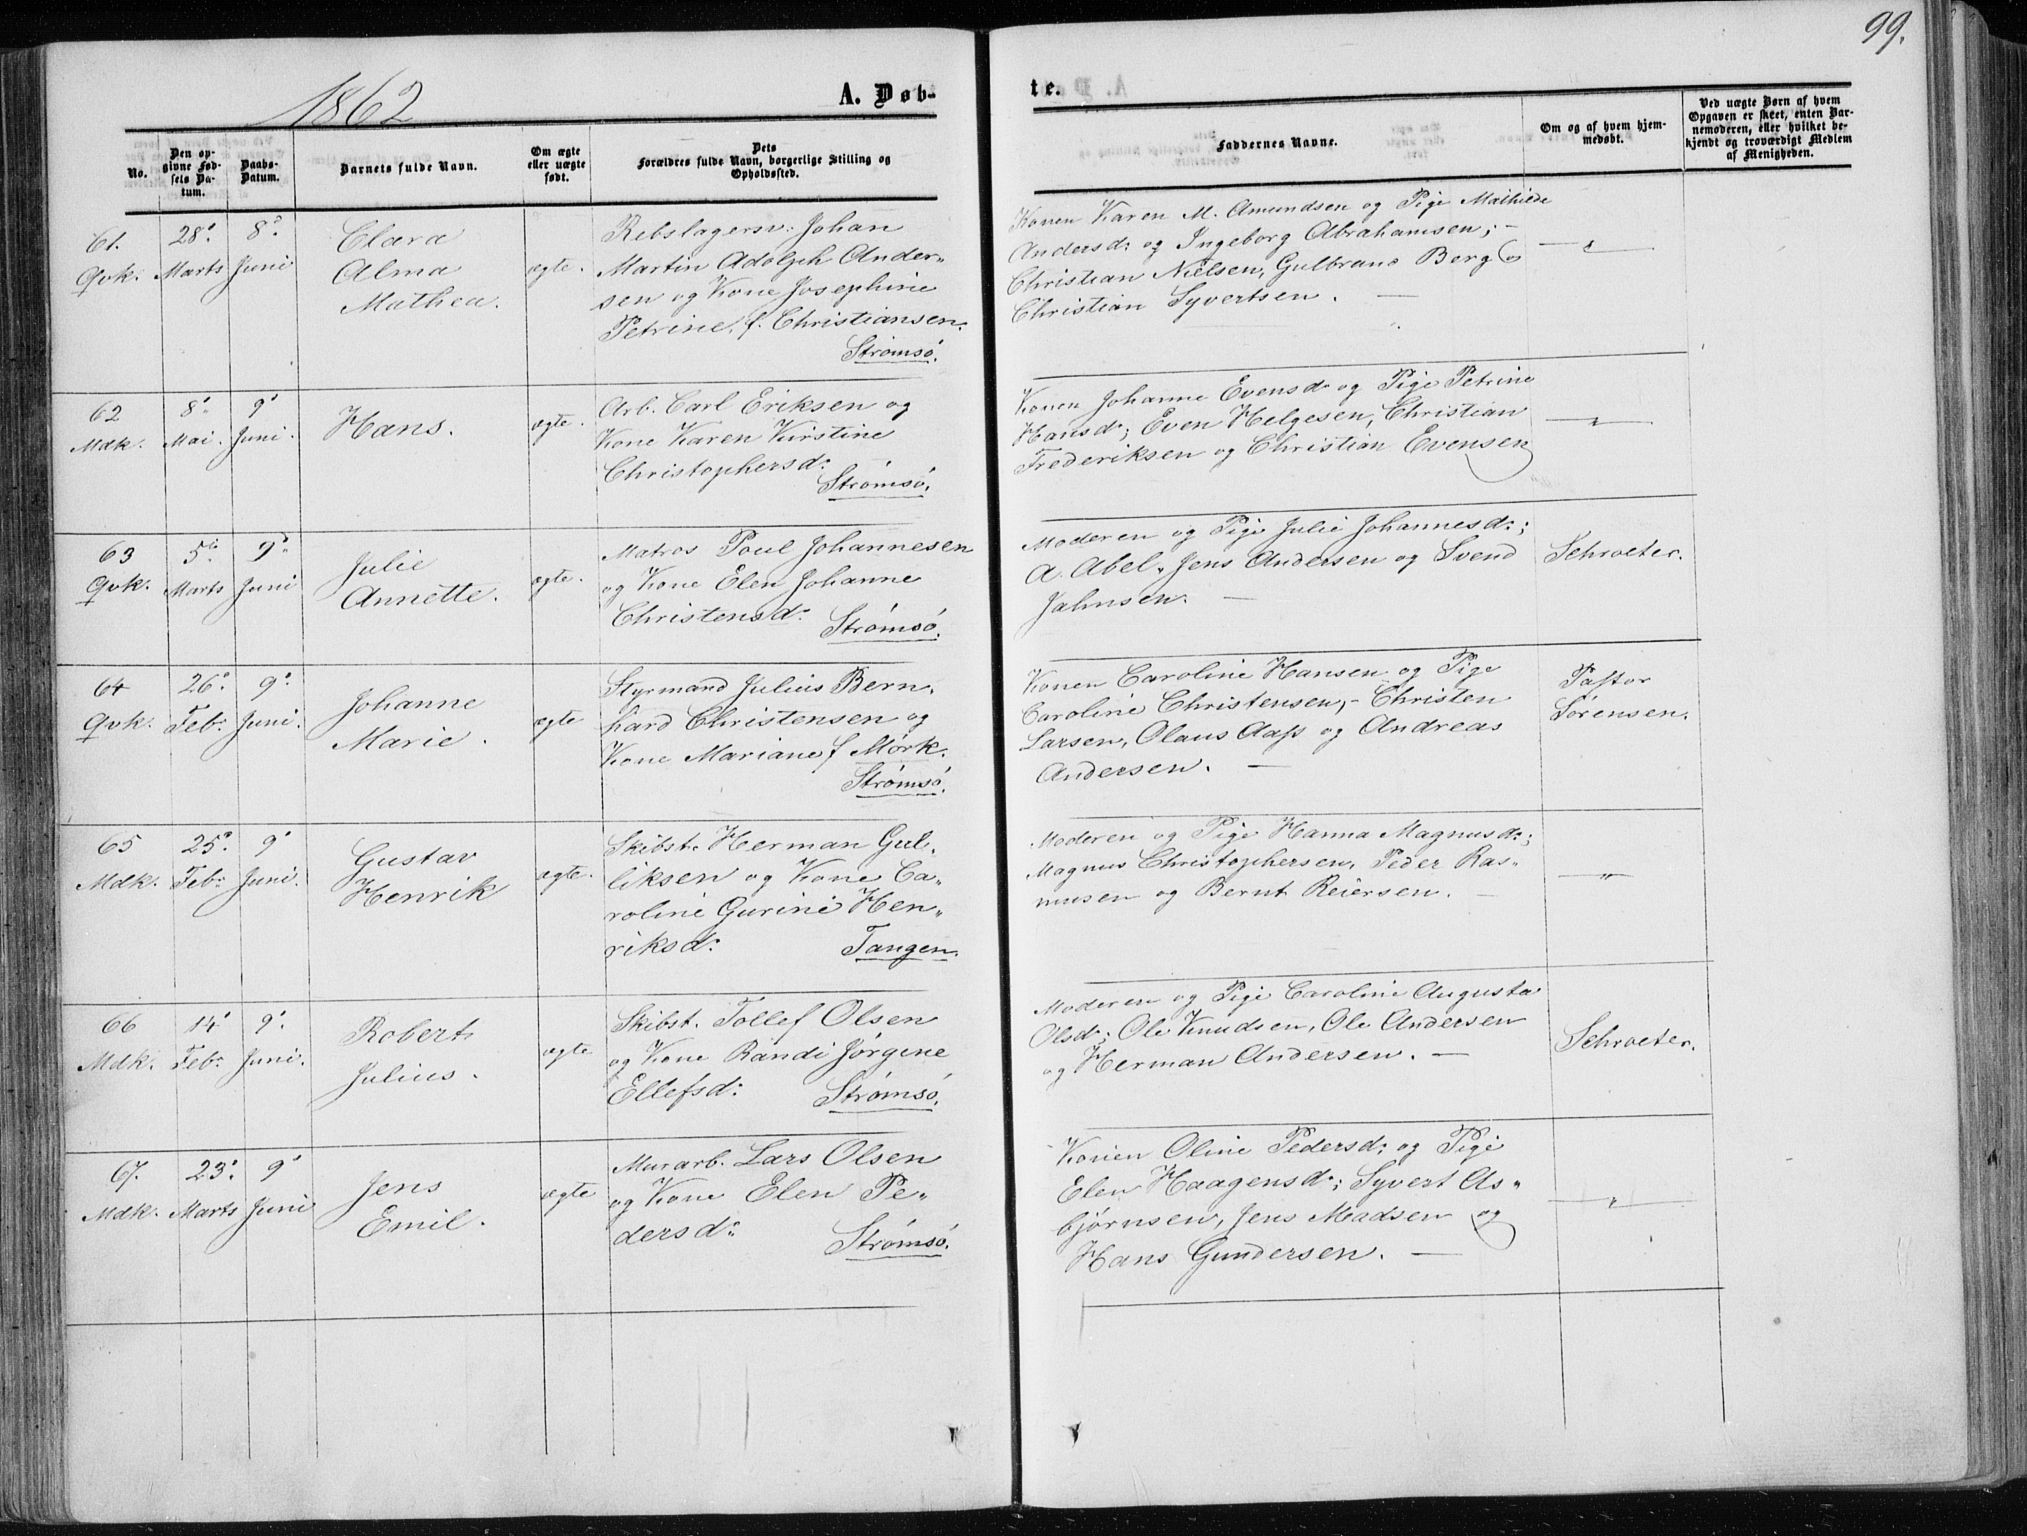 99.
1862
A. Døb-
te.
No.
Den op-
givne Fød-
sels Da-
tum.
Daabs-
Datum.
Barnets fulde Navn.
Om ægte
eller uægte
født.
Dets
Forældres fulde Navn, borgerlige Stilling og
Opholdssted.
Faddernes Navne.
Om og af hvem hjem-
medøbt.
Ved uægte Børn af hvem
Opgaven er skeet, enten Bar-
nemoderen, eller hvilket be-
kjendt og troværdigt Medlem
af Menigheden.
61.
Qvk.
28.
Marts
8.
Juni
Clara
Alma
Mathea.
ægte.
Rebslagersv. Johan
Martin Adolph Ander-
sen og Kone Josephine
Petrine f. Christiansen.
Strømsø.
Konen Karen M. Amundsen og Pige Mathilde
Andersd: og Ingeborg Abrahamsen; -
Christian Nielsen, Gulbrand Berg &
Christian Syvertsen. —
— " —
62
Mdk.
8.
Mai.
9.
Juni.
Hans.
ægte.
Arb. Carl Eriksen og
Kone Karen Kirstine
Christophersd:
Strømsø.
Konen Johanne Evensd: og Pige Petrine
Hansd:; Even Helgesen, Christian
Frederiksen og Christian Evensen
— " —
63
Qvk.
5.
Marts
9.
Juni
Julie
Annette.
ægte.
Matros Poul Johannesen
og Kone Elen Johanne
Christensd:
Strømsø.
Moderen og Pige Julie Johannesd:;
A. Abel, Jens Andersen og Svend
Jahnsen. —
Schroeter.
64
Qvk.
26.
Feb:
9.
Juni.
Johanne
Marie.
ægte
Styrmand Julius Bern-
hard Christensen og
Kone Mariane f Mørk.
Strømsø.
Konen Caroline Hansen og Pige
Caroline Christensen, - Christen
Larsen, Olaus Aass og Andreas
Andersen. —
Pastor
Sørensen.
65
Mdk.
25.
Feb:
9.
Juni.
Gustav
Henrik
ægte.
Skibst. Herman Gul-
liksen og Kone Ca-
roline Gurine Hen-
riksd:
Tangen.
Moderen og Pige Hanna Magnusd:;
Magnus Christophersen, Peder Ras-
musen og Bernt Reiersen. —
— " —
66
Mdk.
14.
Feb:
9.
Juni.
Robert
Julius.
ægte
Skibst. Tollef Olsen
og Kone Randi Jørgine
Ellefsd:
Strømsø.
Moderen og Pige Caroline Augusta
Olsd:; Ole Knudsen, Ole Andersen
og Herman Andersen. —
Schroeter.
67.
Mdk.
23.
Marts
9.
Juni
Jens
Emil.
ægte
Murarb. Lars Olsen
og Kone Elen Pe-
dersd:
Strømsø.
Konen Oline Pedersd: og Pige
Elen Haagensd:; Syvert As-
bjørnsen, Jens Madsen og
Hans Gundersen. —
— " —